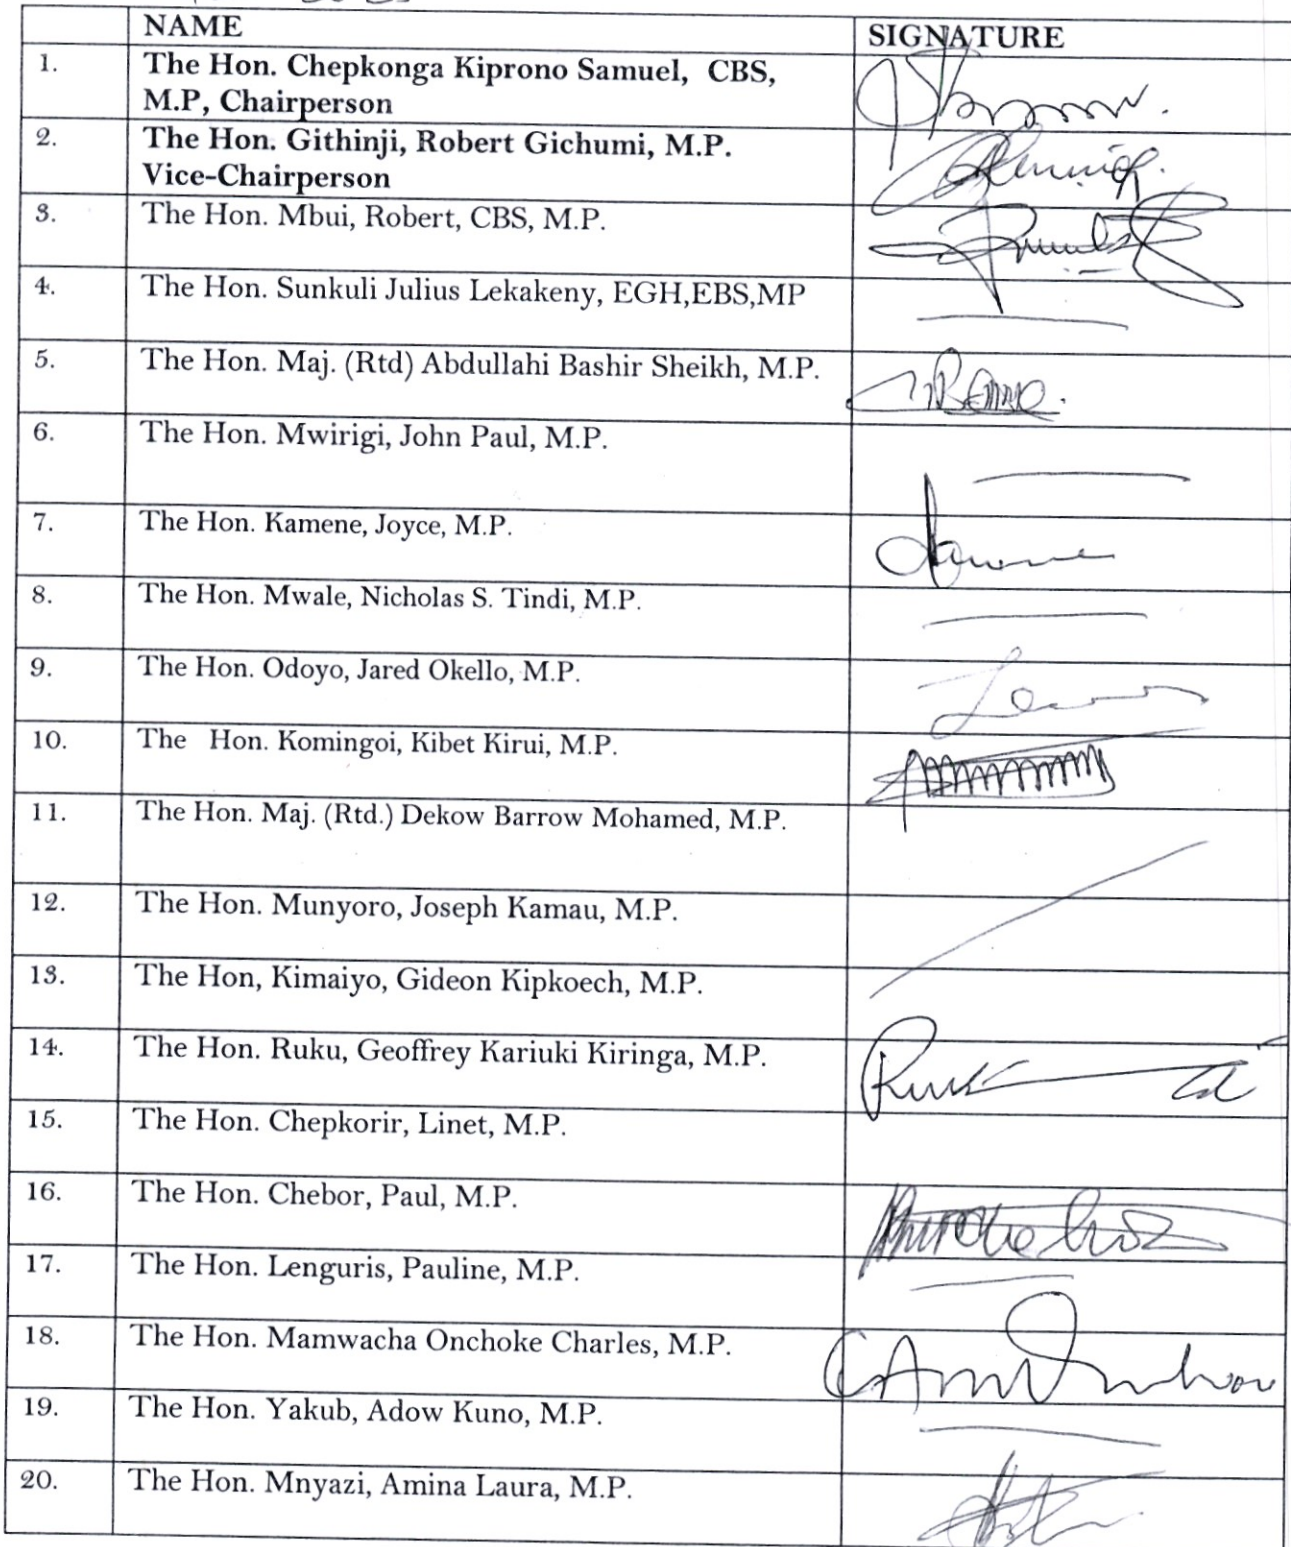 NAME
SIGNATURE
1.
The Hon. Chepkonga Kiprono Samuel, CBS,
M.P, Chairperson
2.
The Hon. Githinji, Robert Gichumi, M.P.
Vice-Chairperson
3.
The Hon. Mbui, Robert, CBS, M.P.
4.
The Hon. Sunkuli Julius Lekakeny, EGH,EBS,MP
5.
The Hon. Maj. (Rtd) Abdullahi Bashir Sheikh, M.P.
6.
The Hon. Mwirigi, John Paul, M.P.
7.
The Hon. Kamene, Joyce, M.P.
8.
The Hon. Mwale, Nicholas S. Tindi, M.P.
9.
The Hon. Odoyo, Jared Okello, M.P.
10.
The Hon. Komingoi, Kibet Kirui, M.P.
11.
The Hon. Maj. (Rtd.) Dekow Barrow Mohamed, M.P.
12.
The Hon. Munyoro, Joseph Kamau, M.P.
13.
The Hon, Kimaiyo, Gideon Kipkoech, M.P.
14.
The Hon. Ruku, Geoffrey Kariuki Kiringa, M.P.
15.
The Hon. Chepkorir, Linet, M.P.
16.
The Hon. Chebor, Paul, M.P.
17.
The Hon. Lenguris, Pauline, M.P.
18.
The Hon. Mamwacha Onchoke Charles, M.P.
19.
The Hon. Yakub, Adow Kuno, M.P.
20.
The Hon. Mnyazi, Amina Laura, M.P.